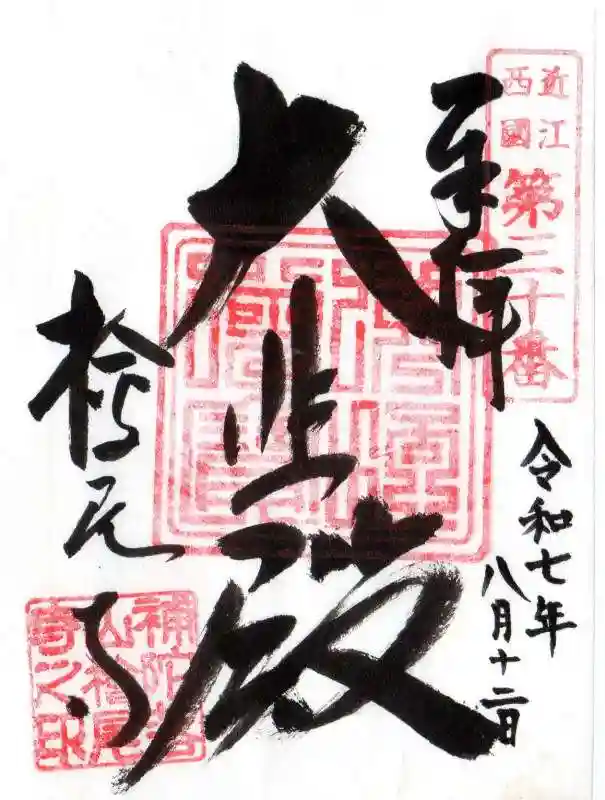 近江
西國
第三十番
奉拝
大悲殿
令和七年
八月十二日
桧尾寺
補陀落
山桧尾
寺之印